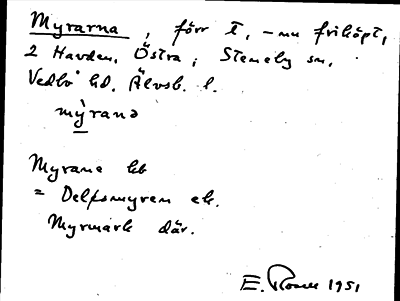 Myrarna, förr t, - nu friköpt,
2 Havden, Östra, Steneby sn,
Vedbo hd. Älvsb. l.
mỳrana
Myrane kb
= Delfsmyren ek.
Myrmark där.
E. 1951